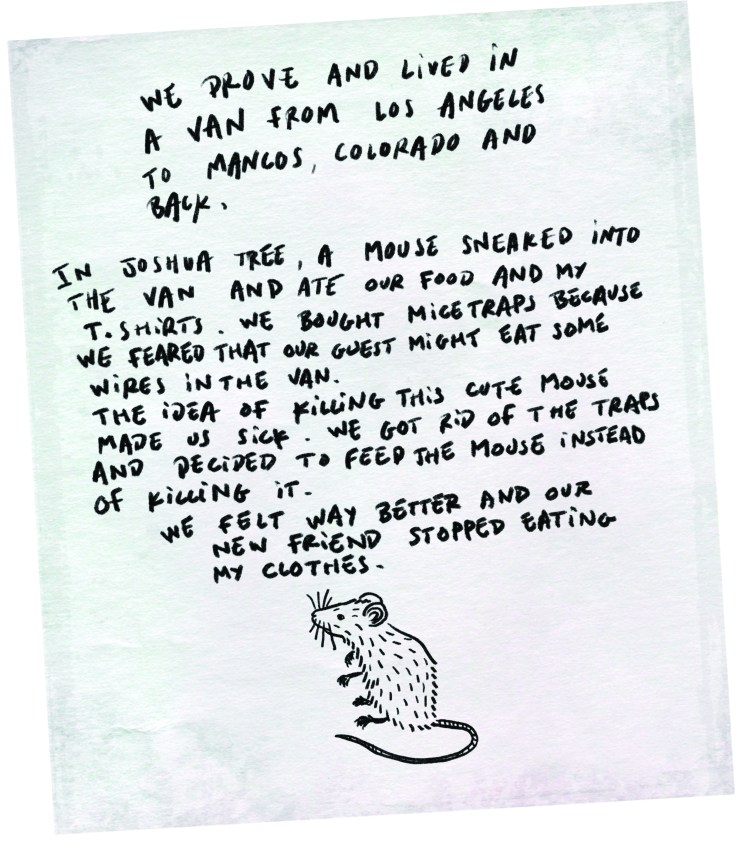 WE DROVE AND LIVED IN
A VAN FROM LOS ANGELES
TO MANCOS, COLORADO AND
BACK.
IN JOSHUA TREE, A MOUSE SNEAKED INTO
THE VAN AND ATE OUR FOOD AND MY
T.SHIRTS. WE BOUGHT MICETRAPS BECAUSE
WE FEARED THAT OUR GUEST MIGHT EAT SOME
WIRES IN THE VAN.
THE IDEA OF KILLING THIS CUTE MOUSE
MADE US SICK. WE GOT RID OF THE TRAPS
AND DECIDED TO FEED THE MOUSE INSTEAD
OF KILLING IT.
WE FELT WAY BETTER AND OUR
NEW FRIEND STOPPED EATING
MY CLOTHES.